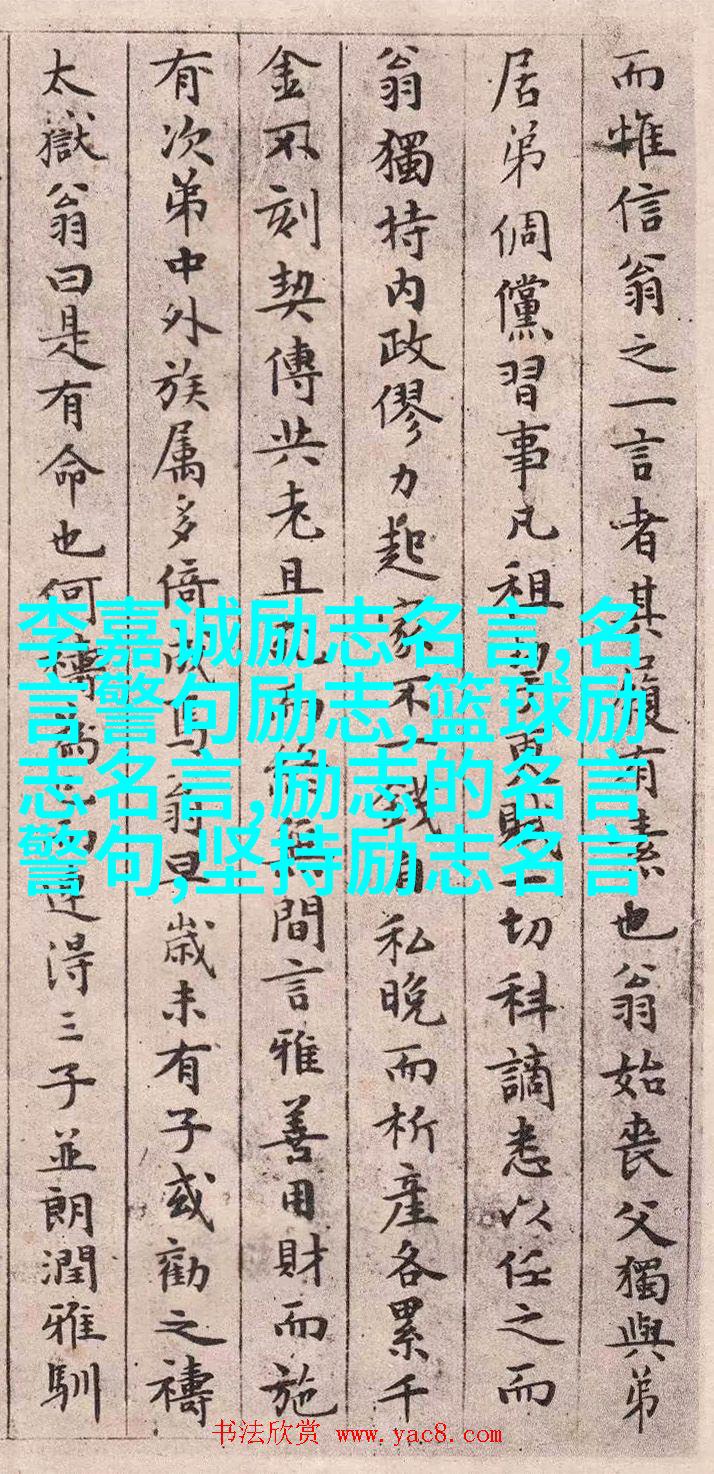 而惟信翁之一言者其操有素也翁始喪父獨與弟
居弟倜儻習事凡租更賦一切科謫悉以任之而
翁獨持内政僇力起家不一錢自私晚而析産各累千
金不刻契傳共老且死而終無間言雅善用財而施
有次弟中外族属多倚成焉翁早歲未有子或勸之禱
太嶽翁曰是有命也何禱為已而连得三子並朗潤雅馴
李嘉诚励志名言,名
言警句励志,篮球励
志名言,励志的名言
警句,坚持励志名言
书法欣赏 www.yac8.com